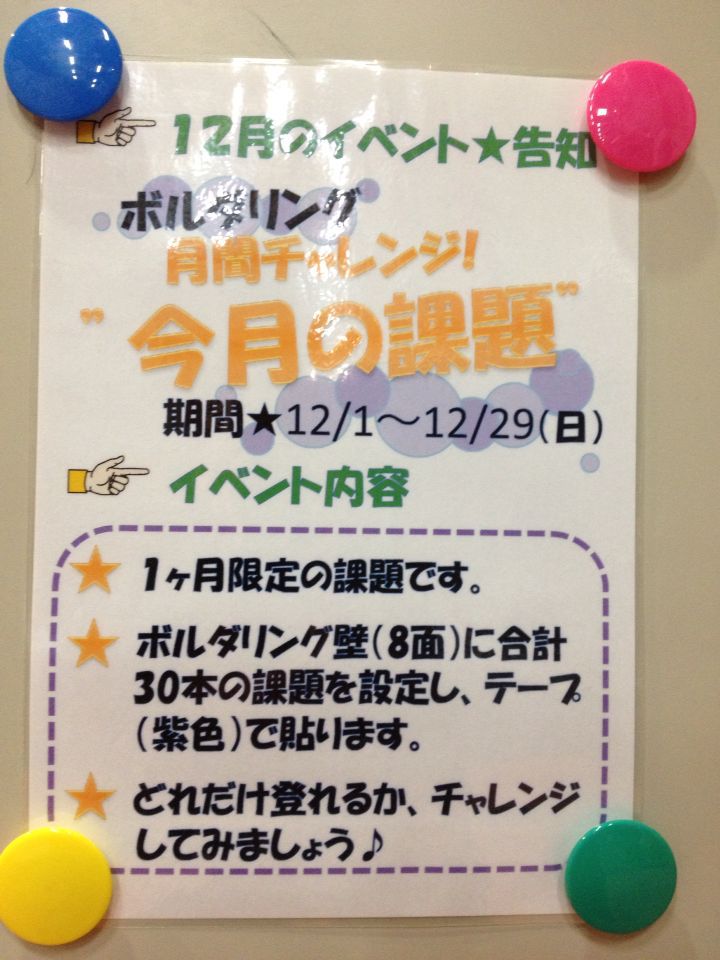 12月のイベント★告知
ボルダリング
月間チャレンジ!
"今月の課題"
期間★12/1～12/29(日)
イベント内容
★ 1ヶ月限定の課題です。
★ ボルダリング壁(8面)に合計
30本の課題を設定し、テープ
(紫色)で貼ります。
★ どれだけ登れるか、チャレンジ
してみましょう♪